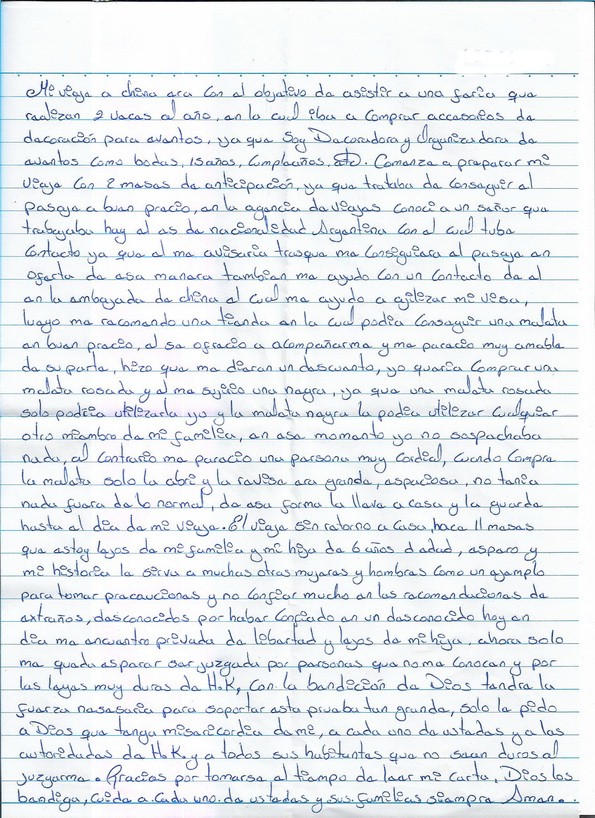 Mi viaje a china era con el objetivo de asistir a una feria que
realizan 2 veces al año, en la cual iba a comprar accesorios de
decoración para eventos, ya que soy Decoradora y Organizadora de
eventos como bodas, 15 años, cumpleaños, etc. Comence a preparar mi
viaje con 2 meses de anticipación, ya que trataba de conseguir el
pasaje a buen precio, en la agencia de viajes conoci a un señor que
trabajaba hay el es de nacionalidad Argentina con el cual tube
contacto ya que el me avisaria tras que me consiguiera el pasaje en
oferta de esa manera tambien me ayudo con un contacto de el
en la embajada de china el cual me ayudo a agilizar mi visa,
luego me recomendo una tienda en la cual podia conseguir una maleta
en buen precio, el se ofrecio a acompañarme y me parecio muy amable
de su parte, hizo que me dieran un descuento, yo queria comprar una
maleta rosada y el me sujirio una negra, ya que una maleta rosada
solo podria utilizarla yo y la maleta negra la podia utilizar cualquier
otro miembro de mi familia, en ese momento yo no sospechaba
nada, al contrario me parecio una persona muy cordial, cuando compre
la maleta solo la abri y la revise era grande, espaciosa, no tenia
nada fuera de lo normal, de esa forma la lleve a casa y la guarde
hasta el dia de mi viaje. El viaje sin retorno a casa, hace 11 meses
que estoy lejos de mi familia y mi hija de 6 años d edad, espero y
mi historia le sirva a muchas otras mujeres y hombres como un ejemplo
para tomar precauciones y no confiar mucho en las recomendaciones de
extraños, desconocidos por haber confiado en un desconocido hoy en
dia me encuentro privada de libertad y lejos de mi hija, ahora solo
me queda esperar ser juzgada por personas que no me conocen y por
las leyes muy duras de H.K, con la bendición de Dios tendre la
fuerza nesesaria para soportar esta prueba tan grande, solo le pido
a Dios que tenga misericordia de mi, a cada uno de ustedes y a las
autoridades de H.K. y a todos sus habitantes que no sean duros al
juzgarme. Gracias por tomarse el tiempo de leer mi carta, Dios los
bendiga, cuida a cada uno de ustedes y sus familias siempre Amen.